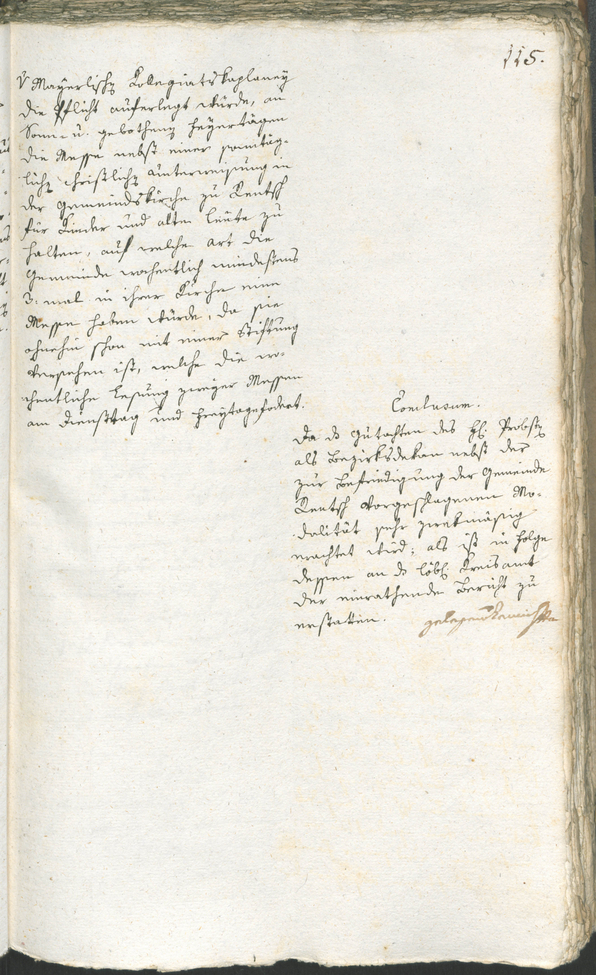 115.
v Mayrlischen Kollegiatskaplaney
die Pflicht auferlegt würde, an
Sonn- u. gebothenen Feyertägen
die Messe nebst einer sonntäg-
lichen christlichen Unterweisung in
der Gemeindskirche zu Rentsch
für Kinder und alten Leute zu
halten, auf welche art die
Gemeinde wochentlich mindestens
3. mal in ihrer Kirche eine
Messe haben würde, da sie
ohnehin schon mit einer Stiftung
versehen ist, welche die wo-
chentliche Lesung zweyer Messen
am Diensttag und Freytage fodert.
Conclusum.
Da das Gutachten des H: Probsten
als Bezirksdekan nebst der
zur Befriedigung der Gemeinde
Rentsch vorgeschlagenen Mo-
dalität sehr zwekmässig
erachtet wird; als ist in Folge
dessen an das löbl: Kreisamt
der einrathende Bericht zu
erstatten.